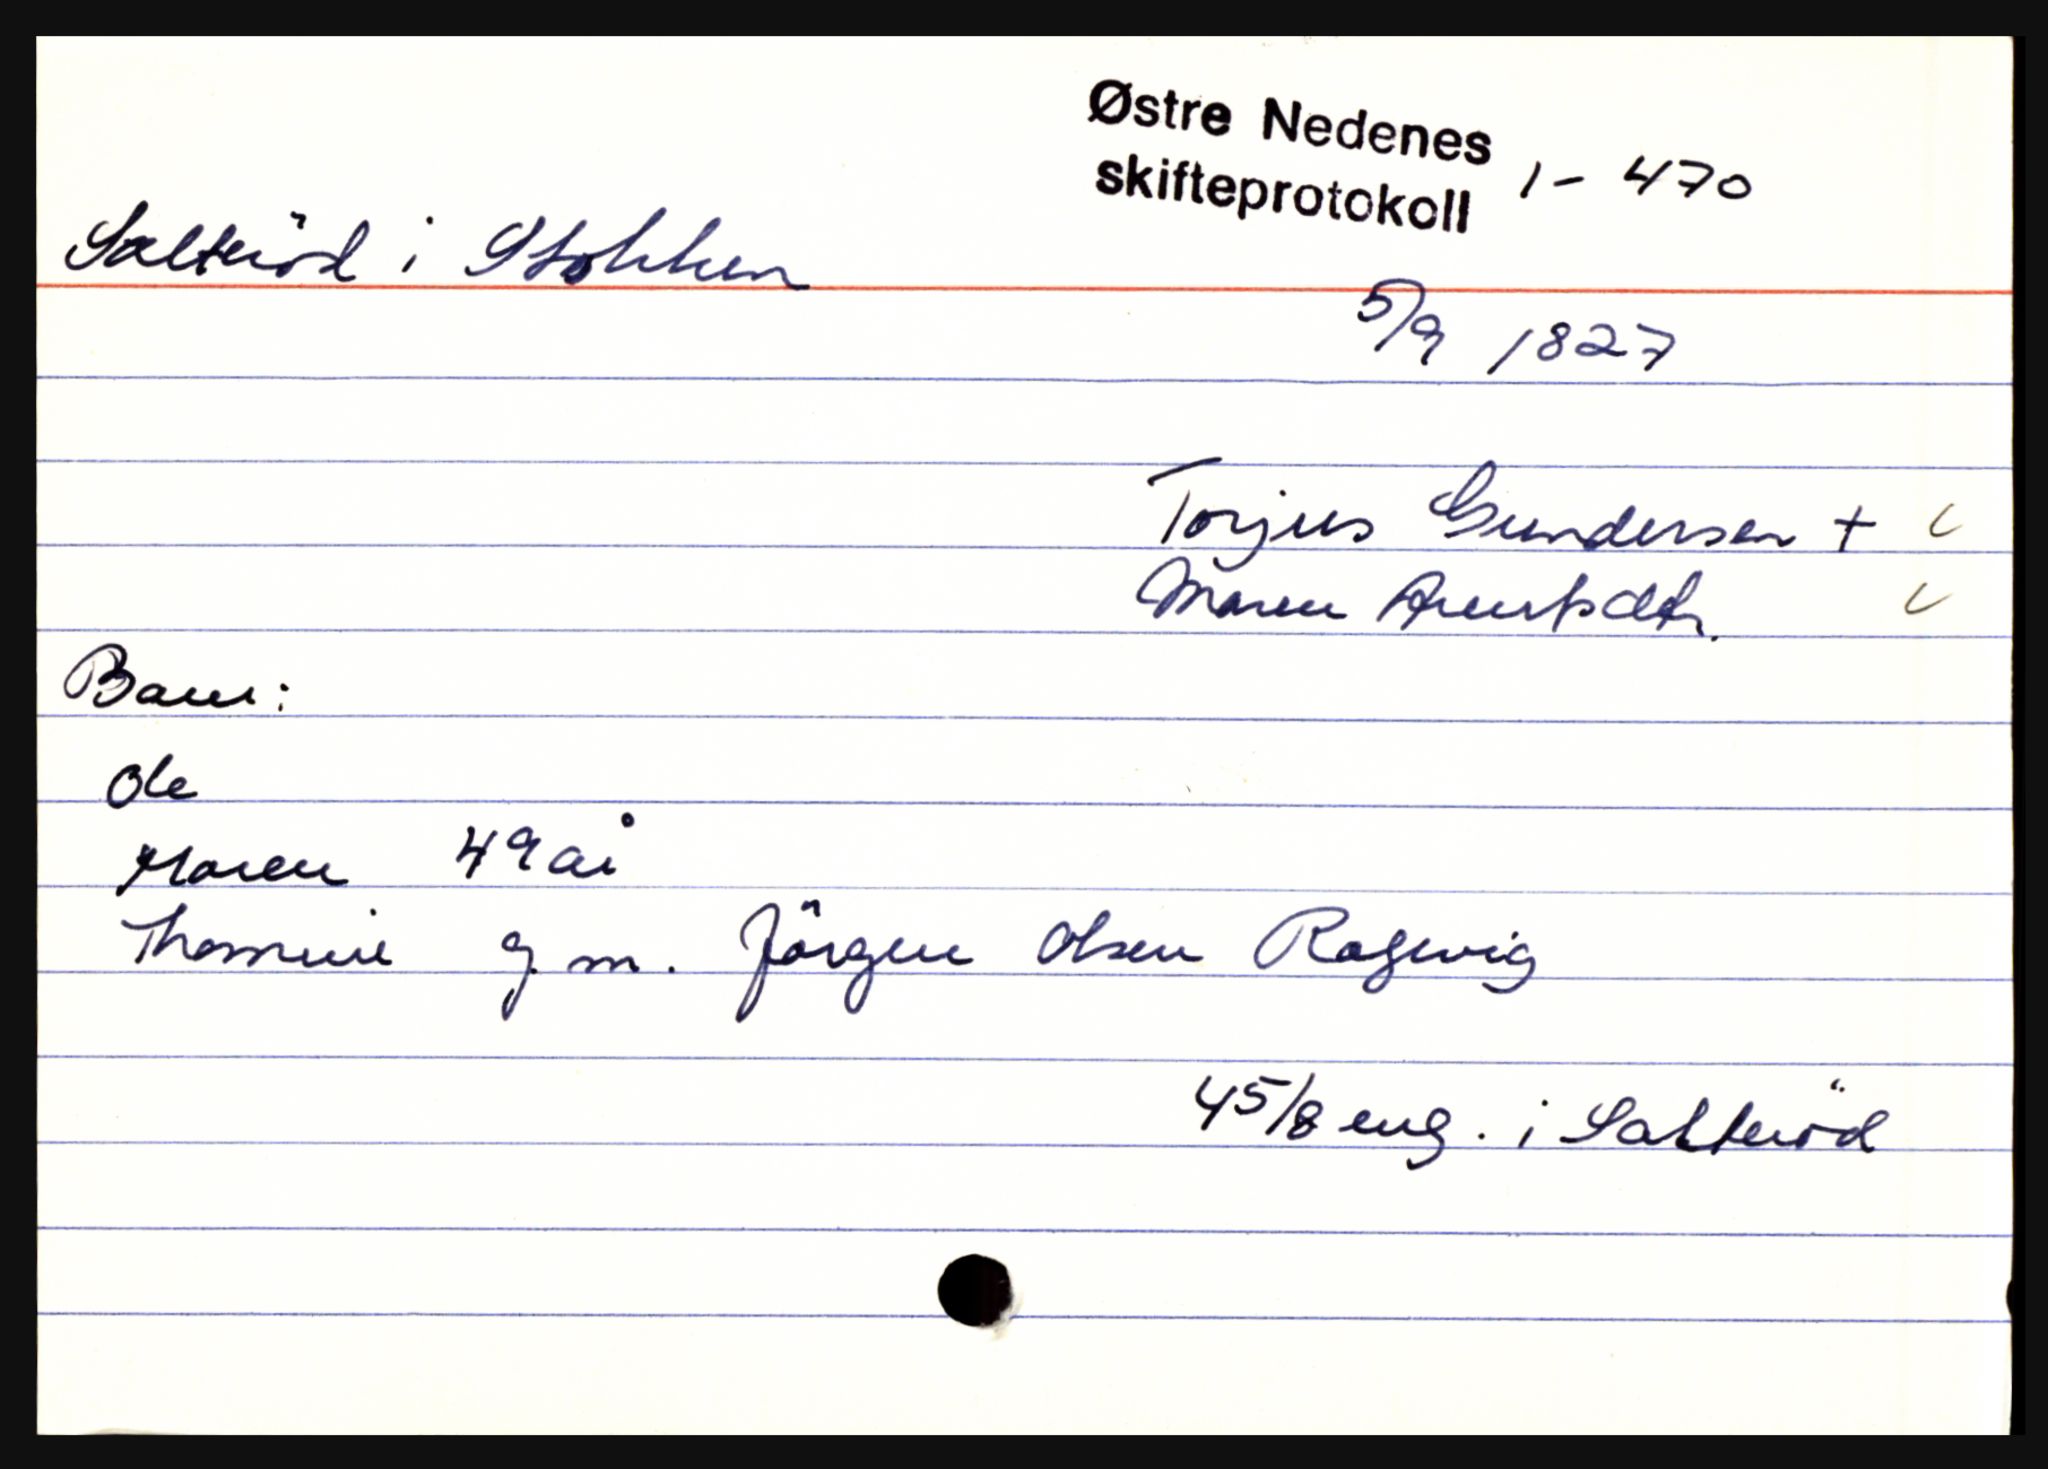 Østre Nedenes
skifteprotokoll 1 - 470
Salteröd i Stokken
5/9 1827
Torjus Gundersen +
Maren Arentsdtr.
Barn:
Ole
Maren 49 år
Thomine g. m. Jörgen Olsen Ragevig
45/8 eng. i Salteröd